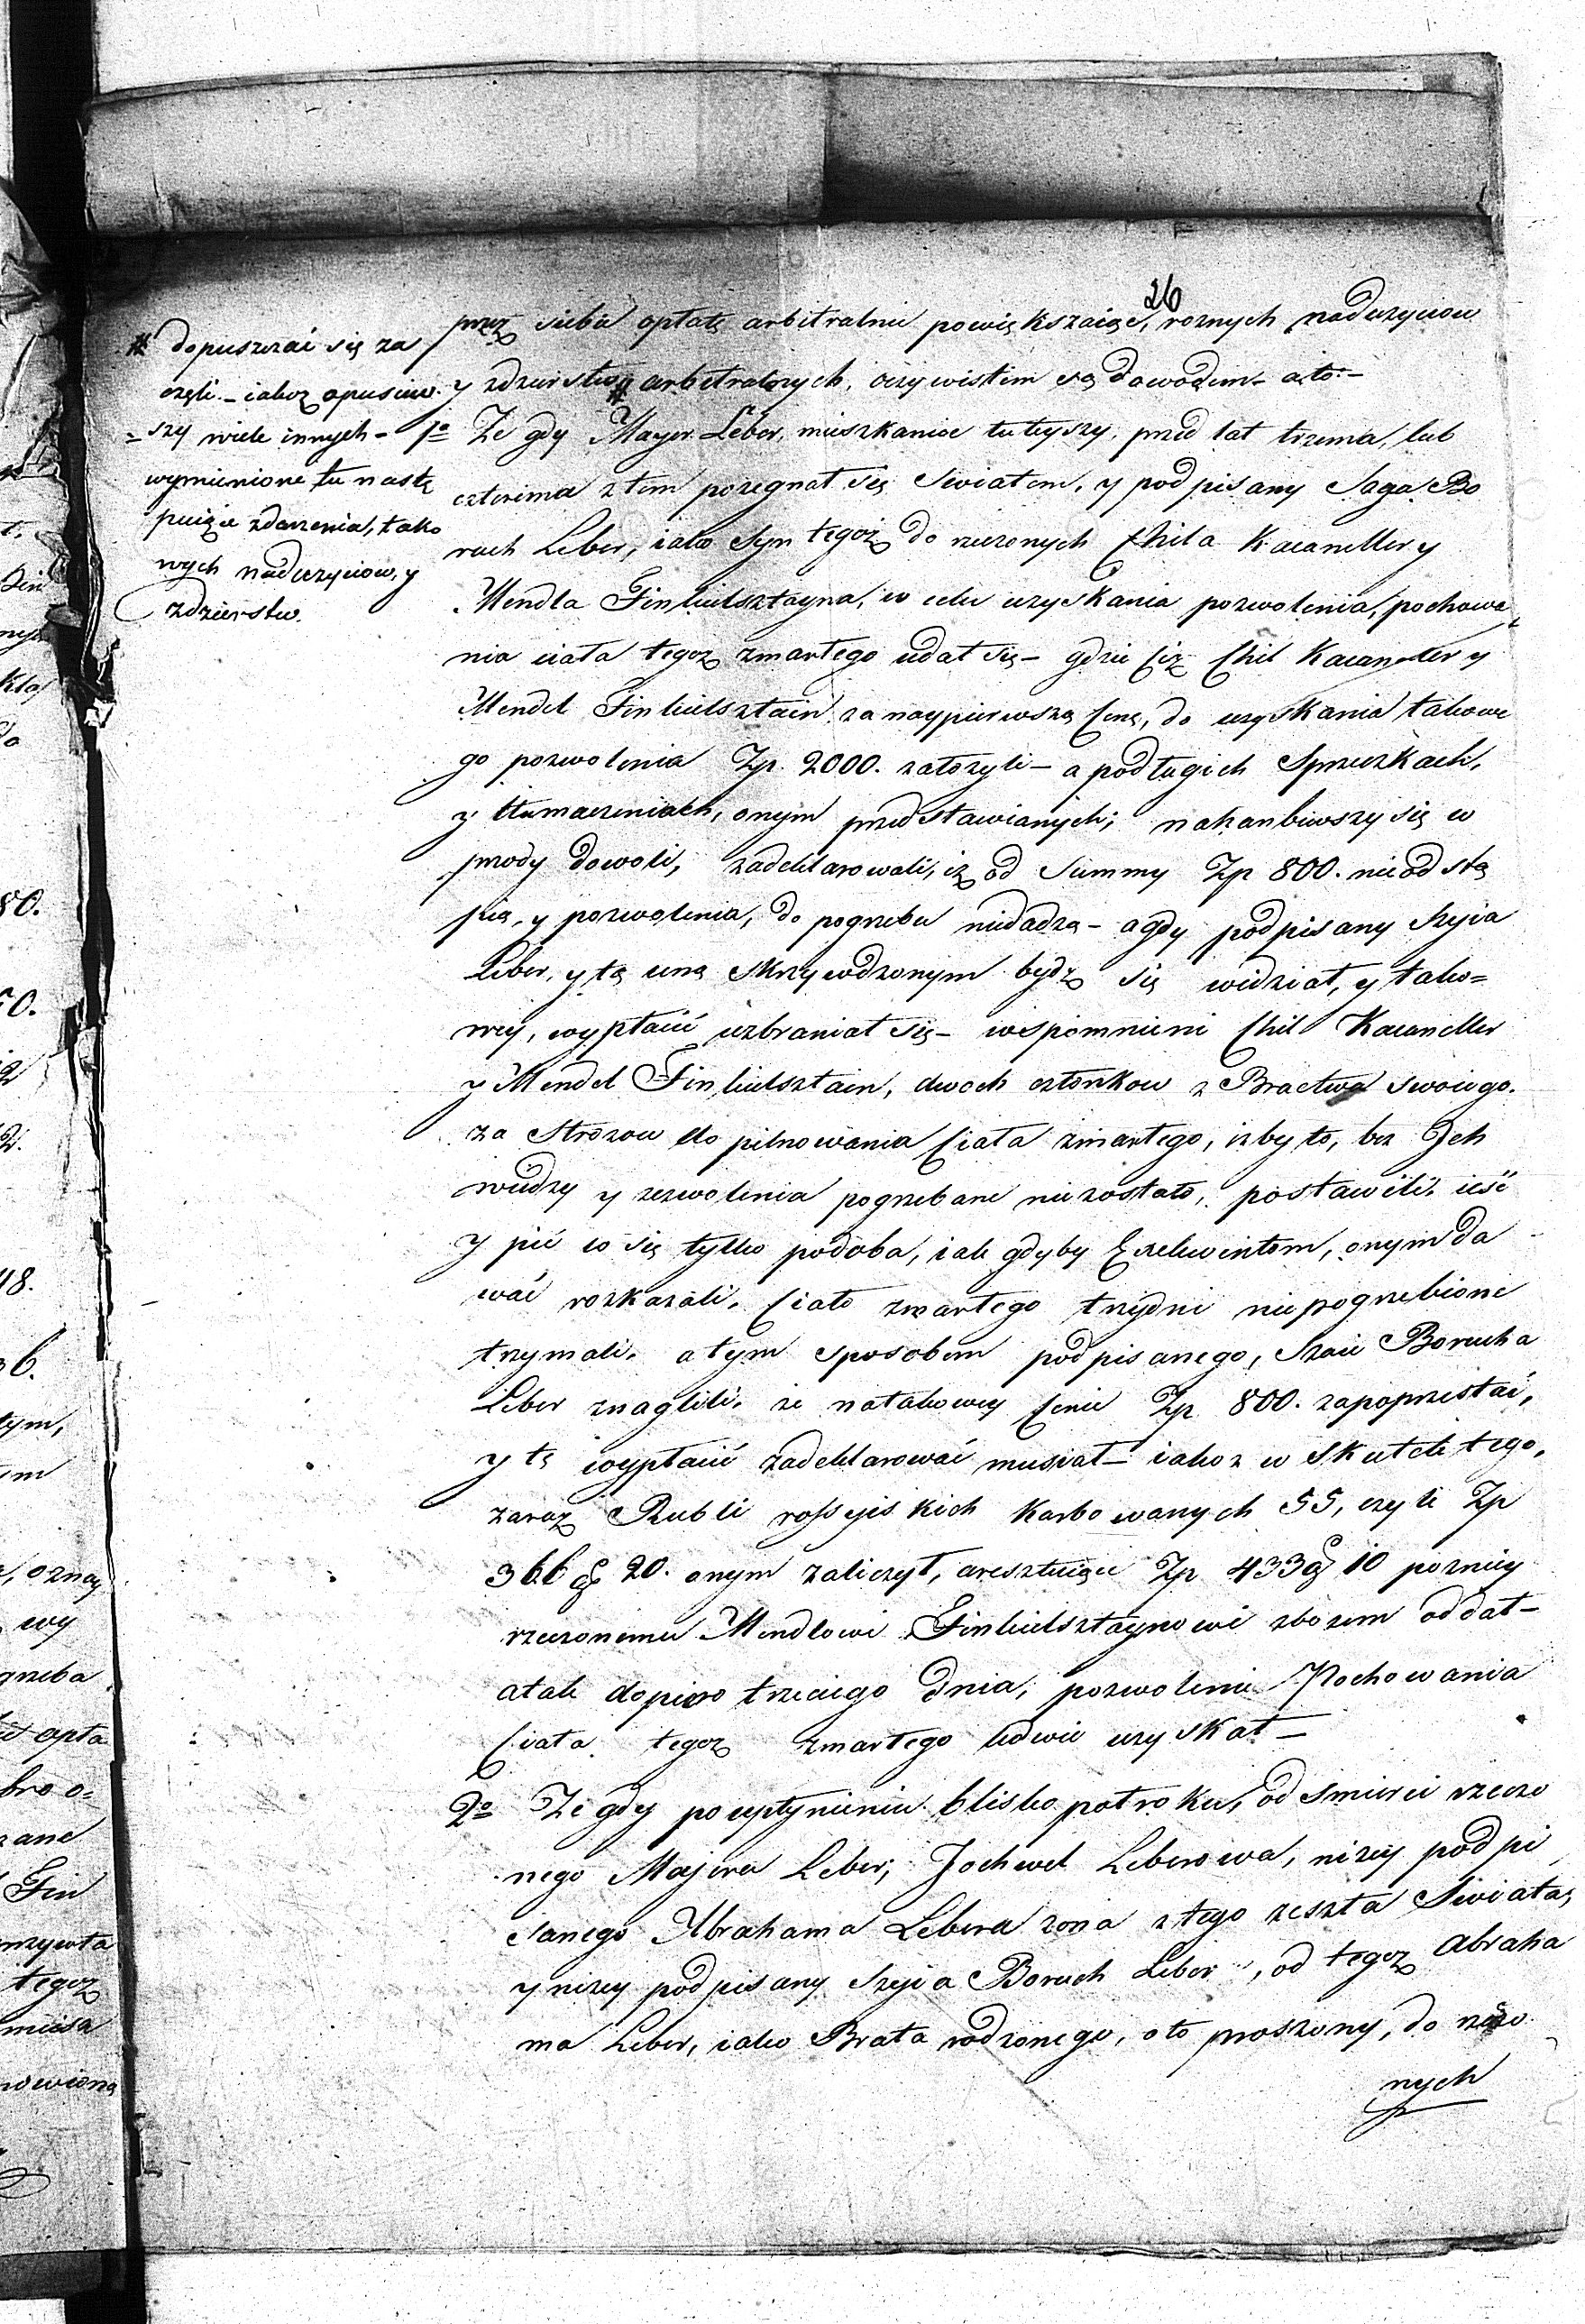 26
przez siebie opłatę arbitralnie powiększaiąc, roznych naduzyciow
y zdzierstw # arbitralnych, oczywistem są dowodem - a to: -
# dopuszczać się za
częli - iakoż opusciw=
=szy wiele innych -
wymienione tu nastę
puiące zdarzenia, tako
wych naduzyciow, y
zdzierstw.
1o Ze gdy Mayer Leber, mieszkaniec tuteyszy, przed lat trzema, lub
czterema z tem pozegnał się Swiatem, y podpisany Saya Bo
ruch Leber, iako Syn tegoż do rzeczonych Chila Kacaneller y
Mendla Finkielsztayna, w celu uzyskania pozwolenia, pochowa=
nia ciała tegoż zmarłego udał się - gdzie Ciż Chil Kacaneller y
Mendel Finkielsztain za naypierwszą Cenę, do uzyskania takowe
go pozwolenia Zp. 2000. załozyli - a po długich Sprzeczkach,
y tłumaczeniach, onym przedstawianych; nahanbiwszy się w
przody dowoli, zadeklarowali, iż od Summy Zp 800. nie odstą
pią, y pozwolenia, do pogrzebu niedadzą - a gdy podpisany Szyia
Leber, y tą ceną skrzywdzonym bydz się widział, y tako=
wey, wypłacić uzbraniał się - wspomnieni Chil Kacaneller
y Mendel Finkielsztain, dwoch członkow z Bractwa swoiego.
za Strozow do pilnowania Ciała zmarłego, izby to, bez Jch
wiedzy y zezwolenia pogrzebane nie zostało, postawili, ieść
y pić co się tylko podoba, iak gdyby Exekwintom, onym da
wać rozkazali. Ciało zmarłego trzy dni niepogrzebione
trzymali, a tym sposobem podpisanego, Szaie Borucha
Leber znaglili, ze na takowey Cenie Zp 800. zapoprzestać,
y tę wypłacić zadeklarować musiał - iakoz w skutek tego,
zaraz Rubli rossyiskich Karbowanych 55, czyli Zp
366 gr 20. onym zaliczył, aresztuiąc Zp 433 gr 10 pozniey
rzeczonemu Mendlowi Finkielsztaynowi zbozem oddał -
a tak dopiero trzeciego dnia, pozwolenie Pochowania
Ciała tegoż zmarłego ledwie uzyskał -
2o Ze gdy po upłynieniu blisko pół roku, od smierci rzeczo
nego Majera Leber, Jochwet Leberowa, nizey podpi
sanego Abrahama Lebera zona z tego zeszła Swiata,
y nizey podpisany Szyia Boruch Leber, od tegoż Abraha
ma Leber, iako Brata rodzonego, o to proszony, do rzeczo
nych